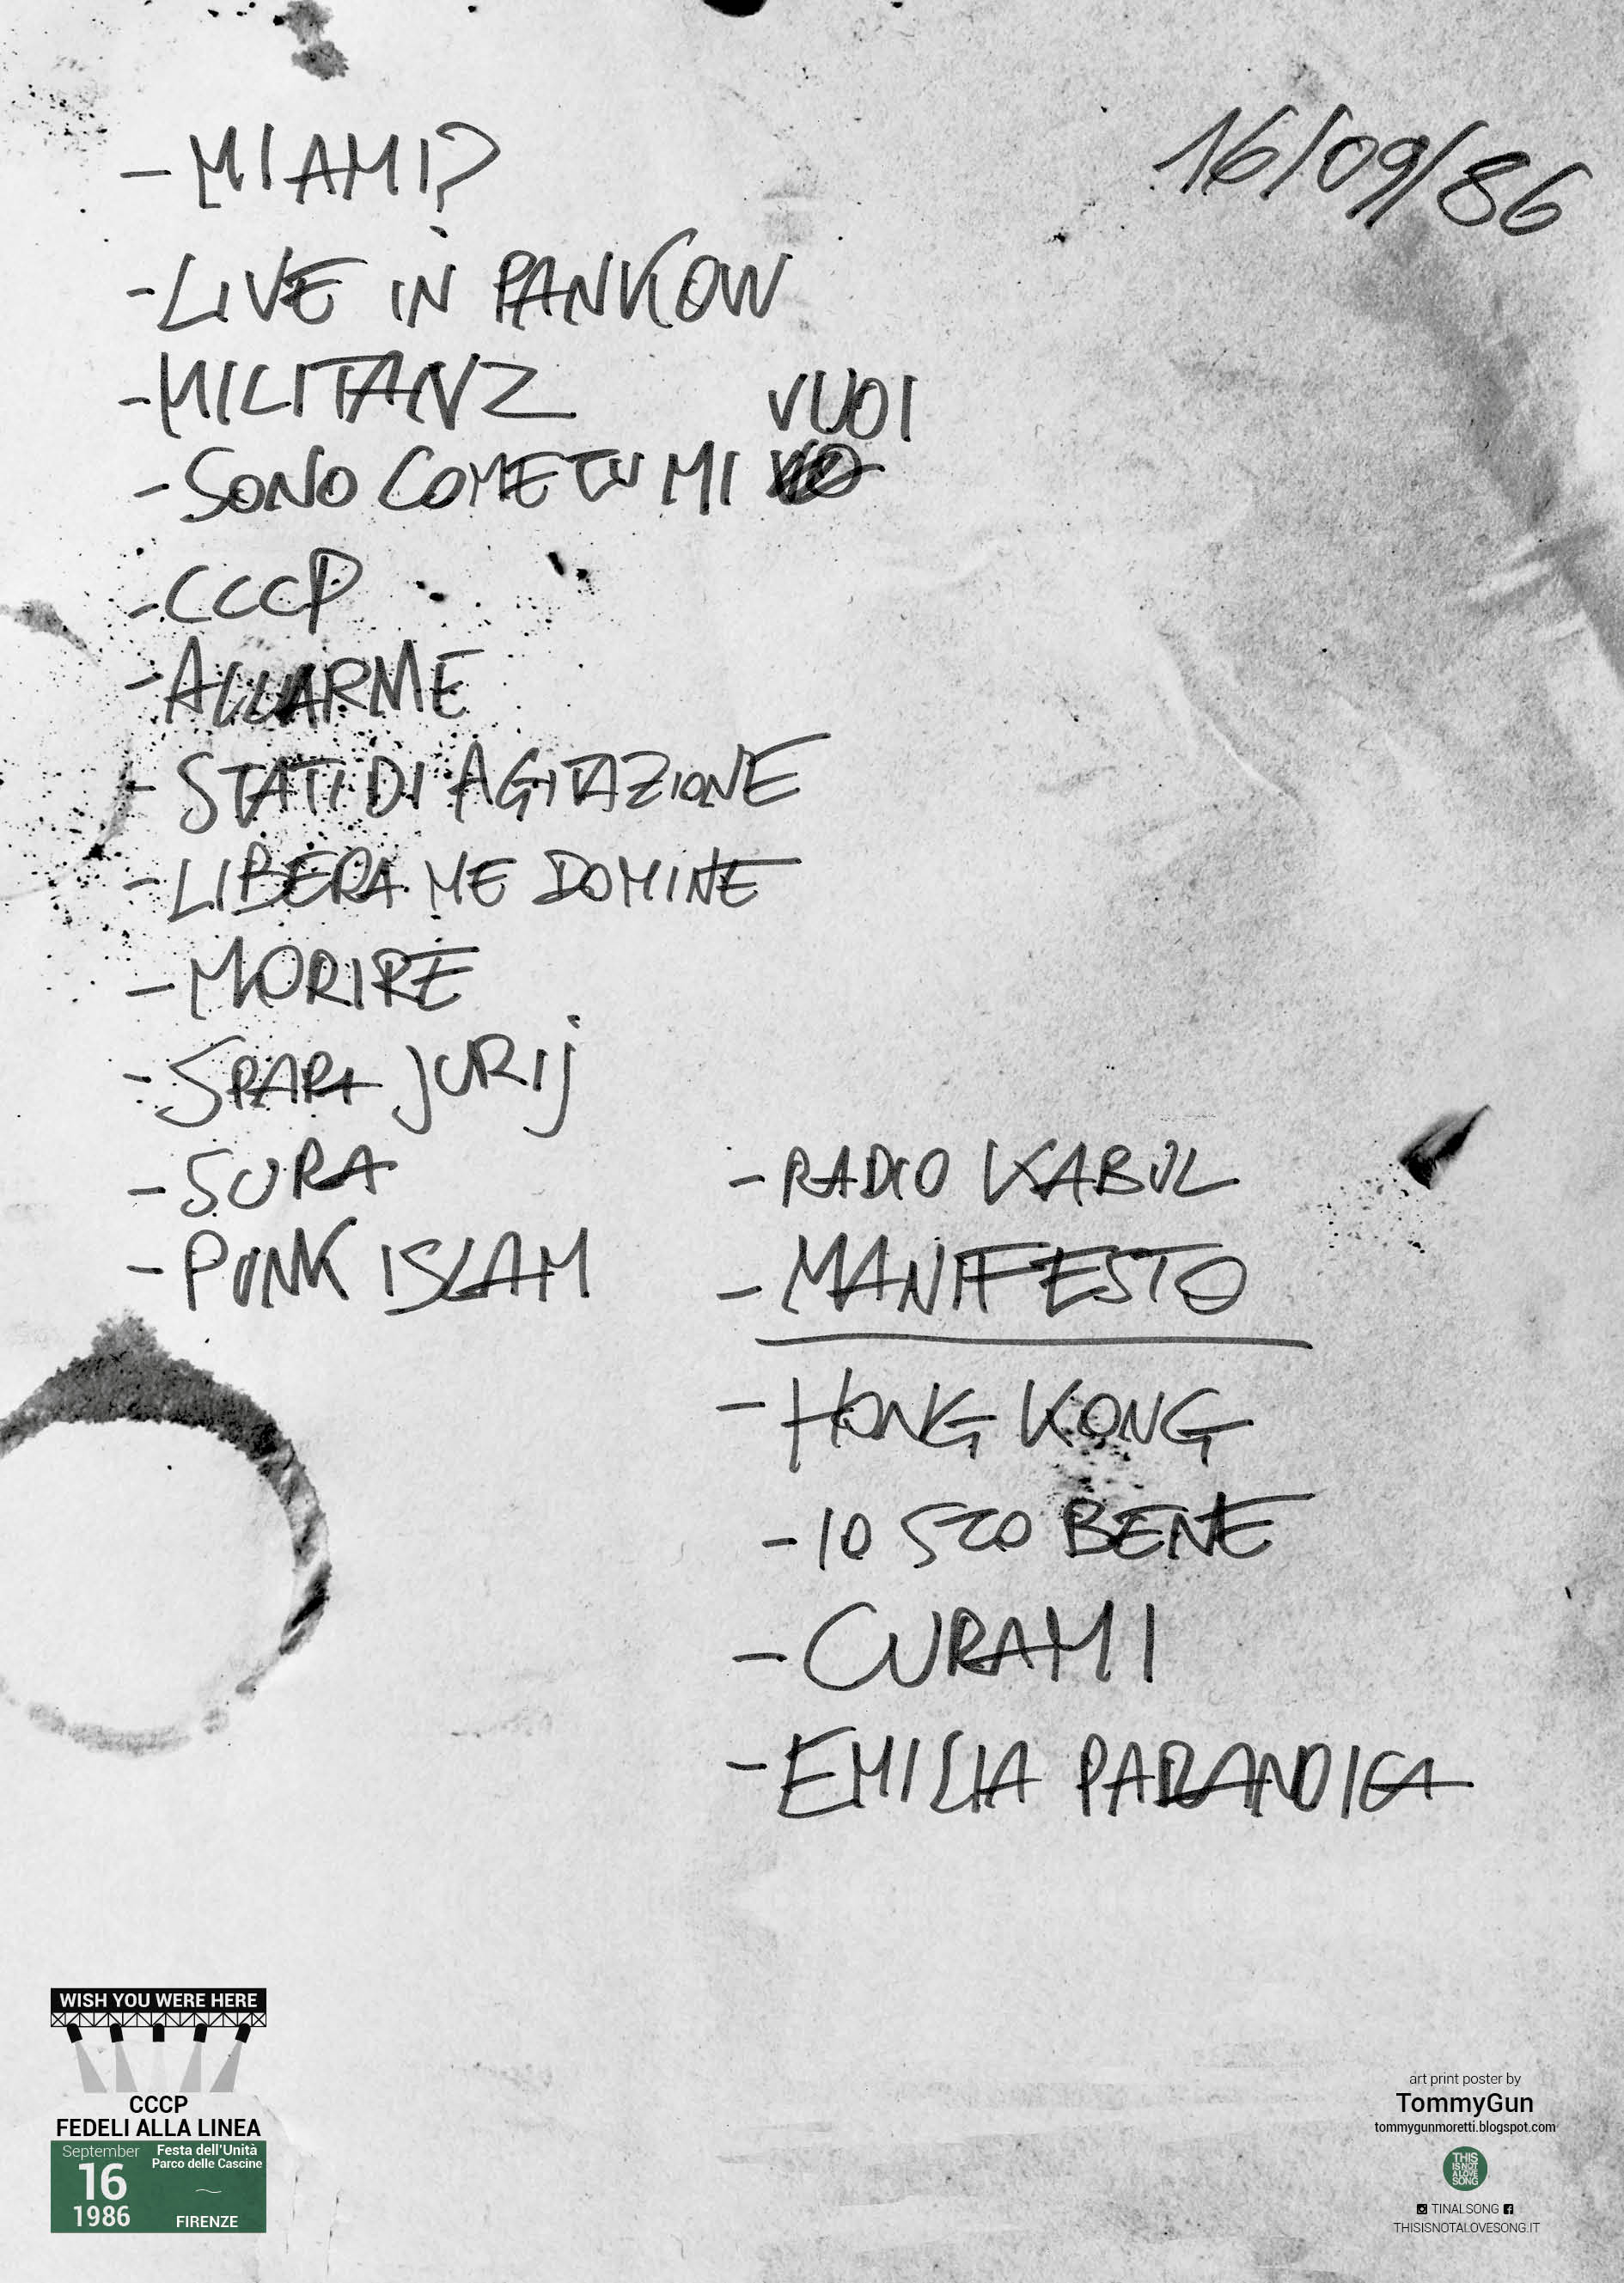 16/09/86
- MIAMI?
- LIVE IN PANKOW
- MILITANZ
VUOI
- SONO COME TU MI
- CCCP
- ALLARME
- STATI DI AGITAZIONE
- LIBERA ME DOMINE
- MORIRE
- SPARA JURIJ
- SURA
- PUNK ISLAM
- RADIO KABUL
- MANIFESTO
- HONG KONG
- IO STO BENE
- CURAMI
- EMILIA PARANOICA
WISH YOU WERE HERE
CCCP
FEDELI ALLA LINEA
September
16
1986
Festa dell'Unità
Parco delle Cascine
~
FIRENZE
art print poster by
TommyGun
tommygunmoretti.blogspot.com
THIS
IS NOT
A LOVE
SONG
TINALSONG
THISISNOTALOVESONG.IT